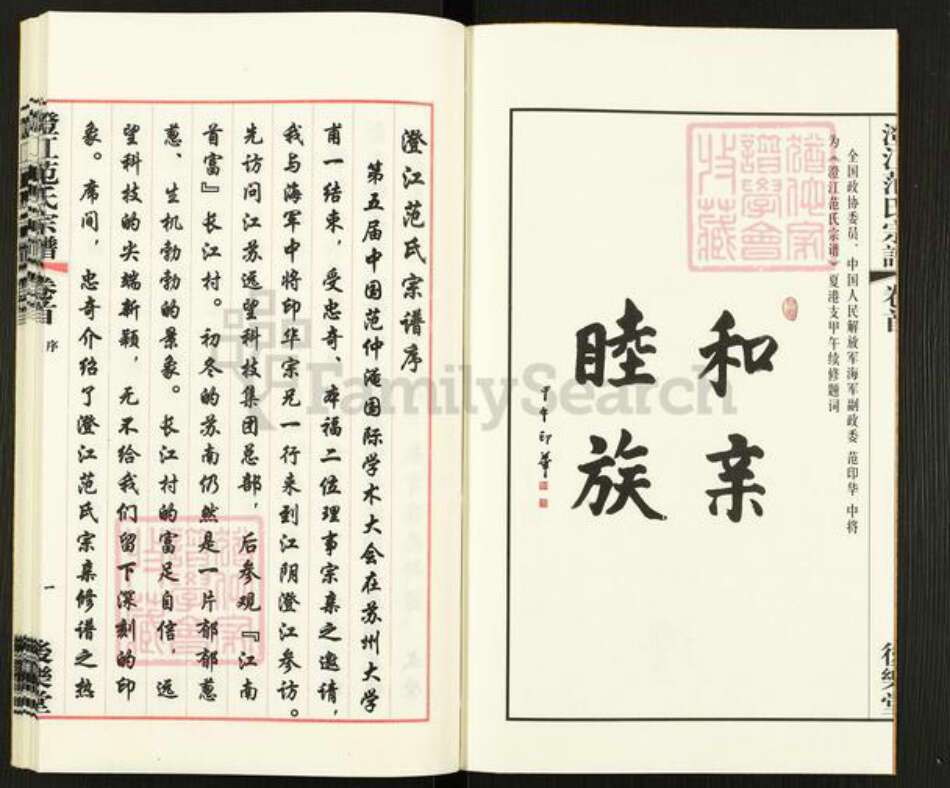 澄江范氏宗譜
卷首
后樂堂
全国政协委员、中国人民解放军海军副政委 范印华 中将
为《澄江范氏宗谱》夏港支甲午续修题词
和亲
睦族
甲午 印華
澄江范氏宗谱序
第五届中国范仲淹国际学术大会在苏州大学
甫一结束，受忠奇、本福二位理事宗亲之邀请，
我与海军中将印华宗兄一行来到江阴澄江参访。
先访问江苏远望科技集团总部，后参观『江南
首富』长江村。初冬的苏南仍然是一片郁郁葱
葱、生机勃勃的景象。长江村的富足自信，远
望科技的尖端新颖，无不给我们留下深刻的印
象。席间，忠奇介绍了澄江范氏宗亲修谱之热
澄江范氏宗譜
卷首
序
一
后樂堂
FamilySearch